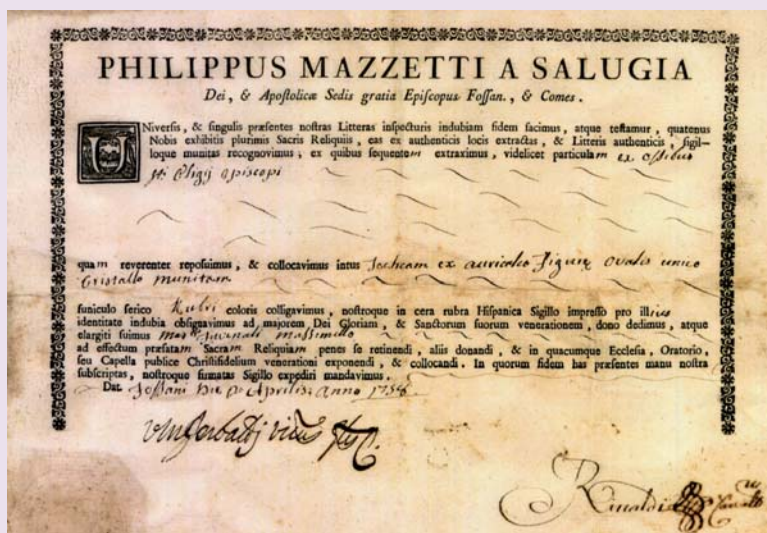 PHILIPPUS MAZZETTI A SALUGIA
Dei, & Apostolicæ Sedis gratia Episcopus Fossan., & Comes.
UNiversis, & singulis præsentes nostras Litteras inspecturis indubiam fidem facimus, atque testamur, quatenus
Nobis exhibitis plurimis Sacris Reliquiis, eas ex authenticis locis extractas, & Litteris authenticis, sigil-
loque munitas recognovimus; ex quibus sequentem extraximus, videlicet particulam ex ossibus
Sti Eligij Episcopi
quam reverenter reposuimus, & collocavimus intus Techeam ex auricalco figuræ ovalis unico
Cristallo munitam
funiculo serico Rubri coloris colligavimus, nostroque in cera rubra Hispanica Sigillo impresso pro illius
identitate indubia obsignavimus ad majorem Dei Gloriam, & Sanctorum suorum venerationem, dono dedimus, atque
elargiti fuimus Juvenali Massimello
ad effectum præfatam Sacram Reliquiam penes se retinendi, aliis donandi, & in quacumque Ecclesia, Oratorio,
seu Capella publice Christifidelium venerationi exponendi, & collocandi. In quorum fidem has præsentes manu nostra
subscriptas, nostroque firmatas Sigillo expediri mandavimus.
Dat. Fossani Die Aprilis Anno 1758
Rinaldi